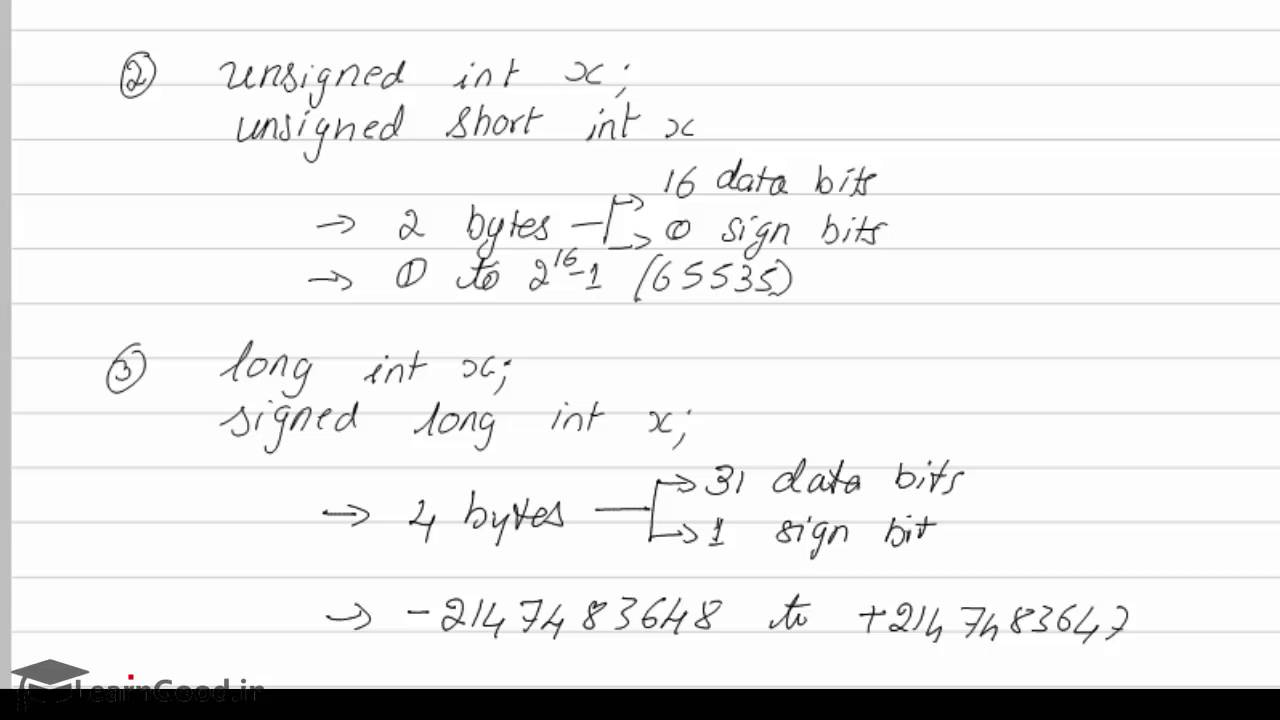 ② unsigned int x;
unsigned short int x
→ 2 bytes → 16 data bits
→ 0 sign bits
→ 0 to 2¹⁶-1 (65535)
③ long int x;
signed long int x;
→ 4 bytes → 31 data bits
→ 1 sign bit
→ -2147483648 to +2147483647
LearnGood.in